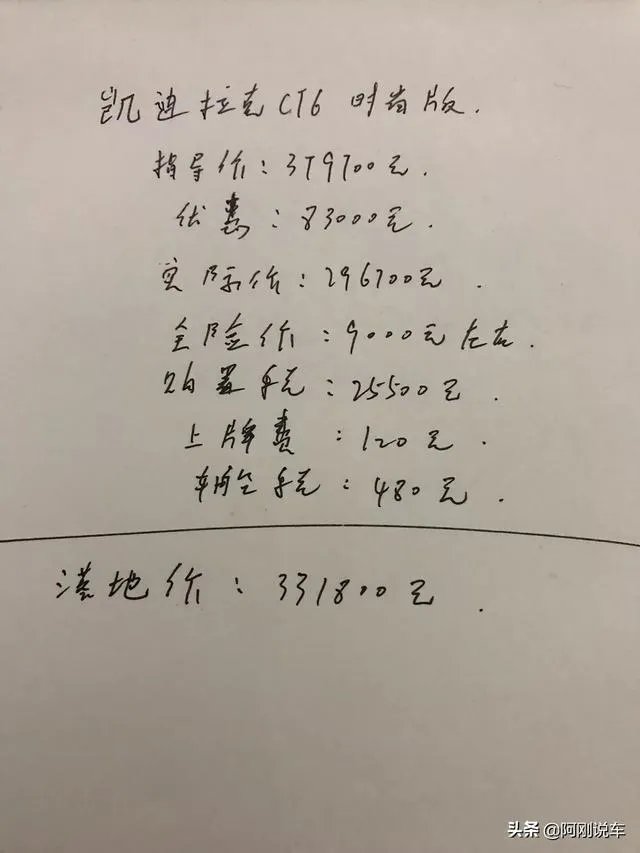 凯迪拉克CT6 时尚版.
指导价:379700元.
优惠:83000元.
实际价:296700元.
全险价:9000元左右.
购置税:25500元.
上牌费:120元.
车船税:480元.
落地价:331800元.
头条 @阿刚说车